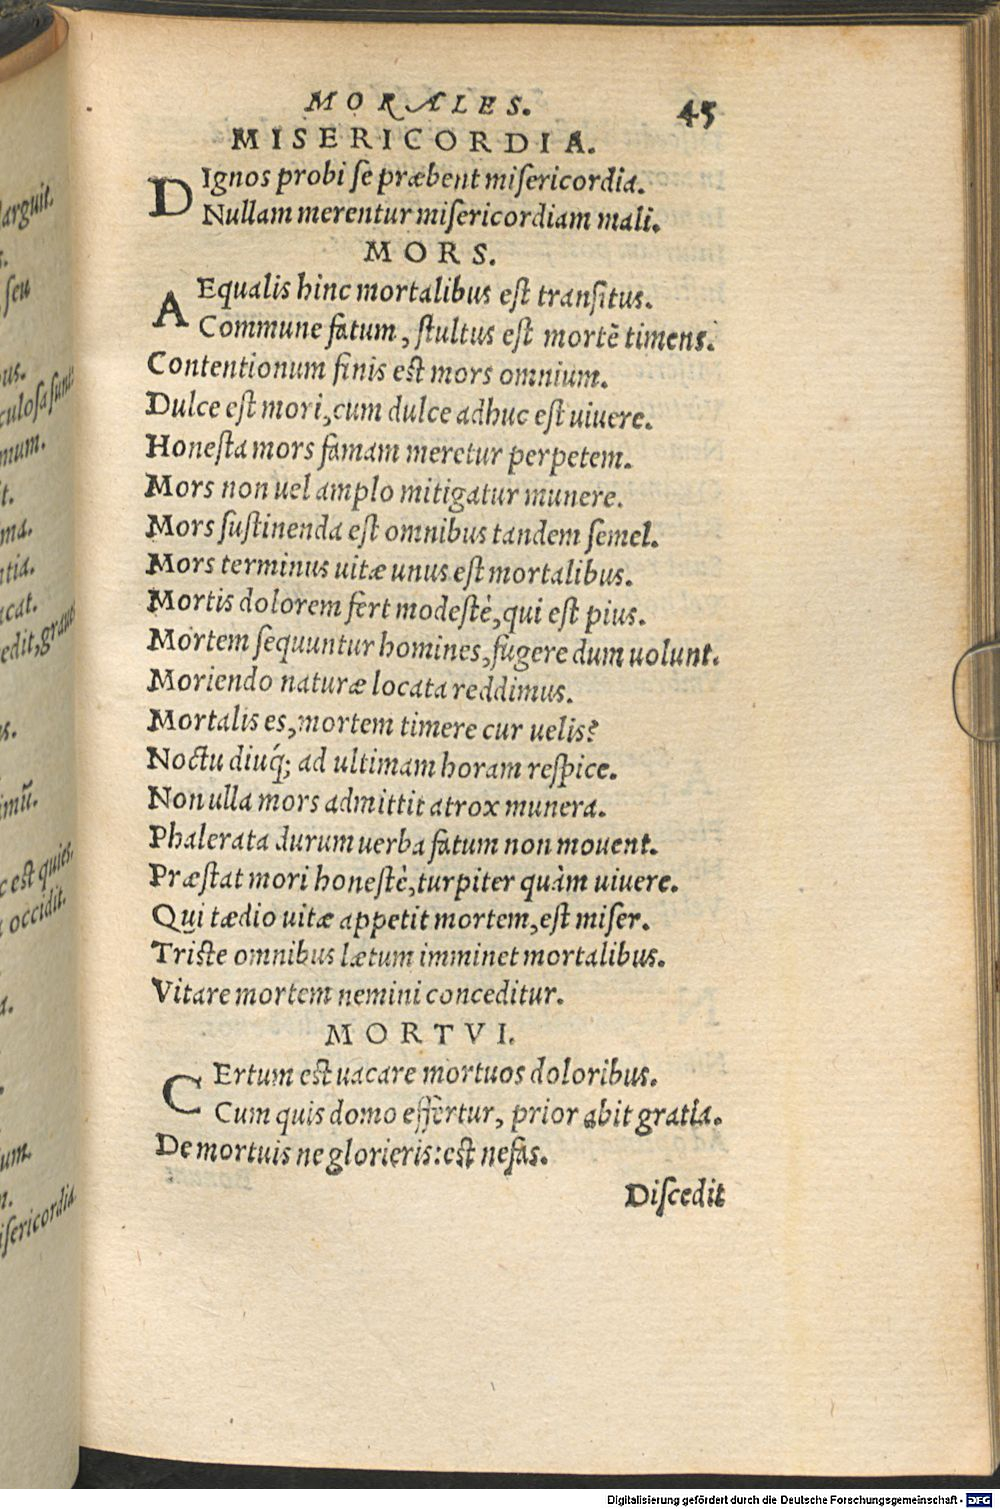 arguit.
s.
seu
us.
culosa sunt
mum.
t.
ma.
ntia.
acat.
edit, graui
s.
imũ.
c est quies.
occidit.
a.
um.
n.
isericordia
MORALES. 45
MISERICORDIA.
DIgnos probi se præbent misericordia.
Nullam merentur misericordiam mali.
MORS.
AEqualis hinc mortalibus est transitus.
Commune fatum, stultus est mortẽ timens.
Contentionum finis est mors omnium.
Dulce est mori, cum dulce adhuc est uiuere.
Honesta mors famam meretur perpetem.
Mors non uel amplo mitigatur munere.
Mors sustinenda est omnibus tandem semel.
Mors terminus uitæ unus est mortalibus.
Mortis dolorem fert modestè, qui est pius.
Mortem sequuntur homines, fugere dum uolunt.
Moriendo naturæ locata reddimus.
Mortalis es, mortem timere cur uelis?
Noctu diuq́; ad ultimam horam respice.
Non ulla mors admittit atrox munera.
Phalerata durum uerba fatum non mouent.
Præstat mori honestè, turpiter quàm uiuere.
Qui tædio uitæ appetit mortem, est miser.
Triste omnibus lætum imminet mortalibus.
Vitare mortem nemini conceditur.
MORTVI.
CErtum est uacare mortuos doloribus.
Cum quis domo effertur, prior abit gratia.
De mortuis ne glorieris: est nefas.
Discedit
Digitalisierung gefördert durch die Deutsche Forschungsgemeinschaft - DFG